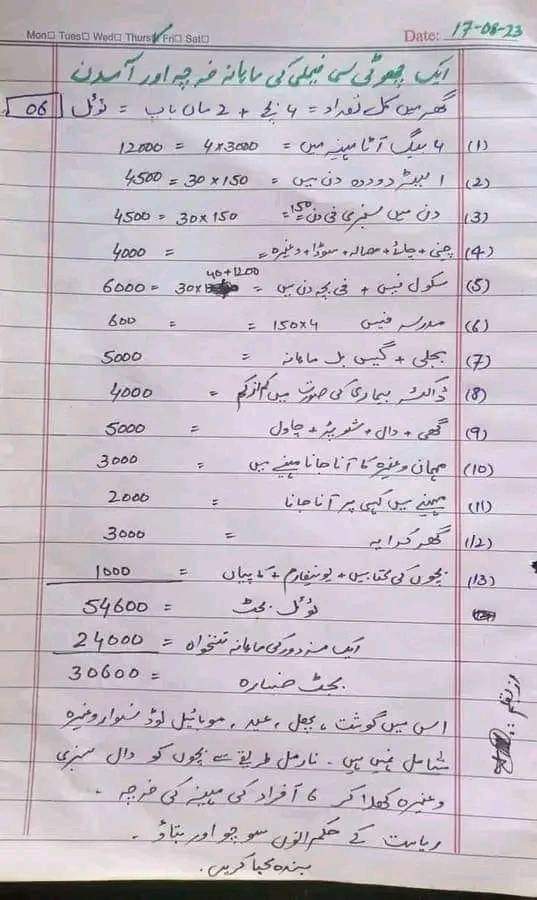 Mon□ Tues□ Wed□ Thurs□ Fri□ Sat□ Date: 17-08-23
ایک چھوٹی سی فیملی کی ماہانہ خرچہ اور آمدن
گھر میں کل تعداد = 4 بچے + 2 ماں باپ = ٹوٹل 06
(1) 4 بیگ آٹا مہینے میں = 4x3000 = 12000
(2) 1 لیٹر دودھ دن میں = 30x150 = 4500
(3) دن میں سبزی فی دن 150 = 30x150 = 4500
(4) چینی + چائے + مصالہ + سوڈا + وغیرہ = 4000
(5) سکول فیس + فی بچہ دن میں = 30x 40+1200 = 6000
(6) مدرسہ فیس 150x4 = = 600
(7) بجلی + گیس بل ماہانہ = 5000
(8) ڈاکٹر بیماری کی صورت میں کم از کم = 4000
(9) گھی + دال + + چاول = 5000
(10) مہمان وغیرہ کا آنا جانا مہینے میں = 3000
(11) مہینے میں کہی پر آنا جانا = 2000
(12) گھر کرایہ = 3000
(13) بچوں کی کتابیں + یونیفارم + کاپیاں = 1000
ٹوٹل بجٹ = 54600
ایک مزدور کی ماہانہ تنخواہ = 24000
بجٹ خسارہ = 30600
اس میں گوشت ، پھل ، عید ، موبائیل لوڈ وغیرہ
شامل نہیں ہیں ۔ نارمل طریقے سے بچوں کو دال سبزی
وغیرہ کھلا کر 6 آفراد کی مہینے کی خرچہ ۔
ریاست کے حکمرانوں سوچو اور بتاؤ ۔
بندہ کیا کریں ۔